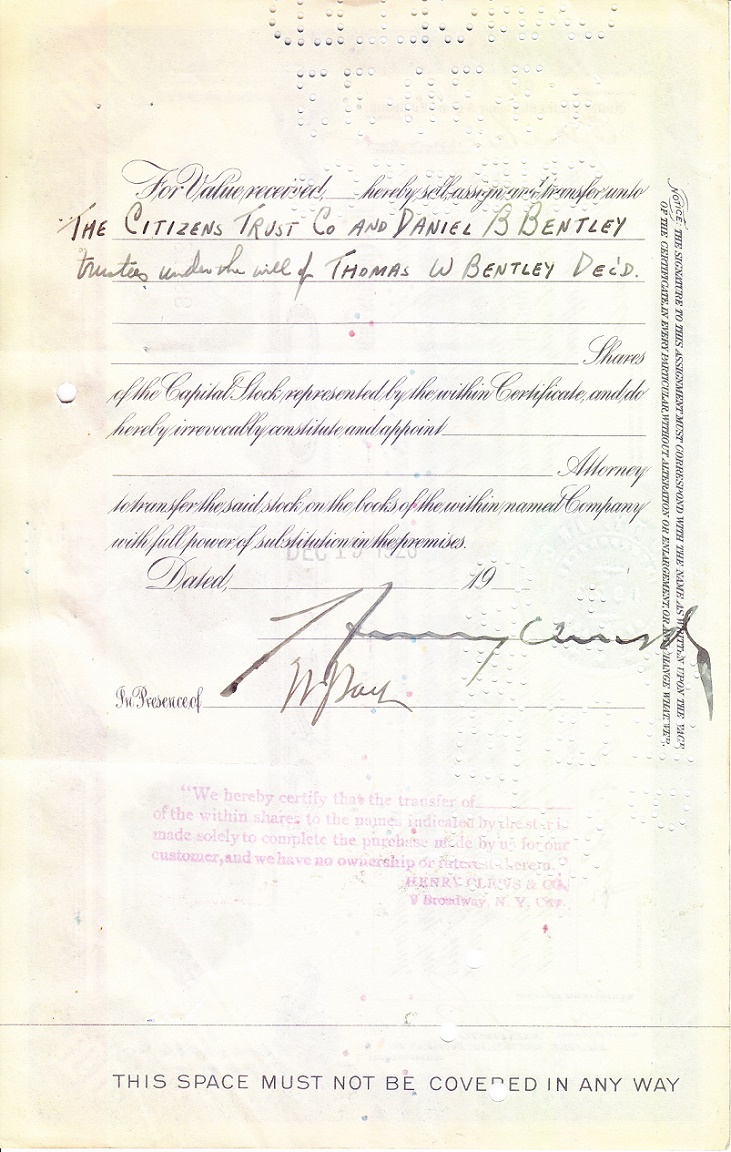 For Value received, hereby sell, assign and transfer unto
THE CITIZENS TRUST CO AND DANIEL B BENTLEY
trustees under the will of THOMAS W BENTLEY DEC'D.
Shares
of the Capital Stock, represented by the within Certificate, and do
hereby irrevocably constitute and appoint
Attorney
to transfer the said stock on the books of the within named Company
with full power of substitution in the premises.
DEC 19 1928
Dated, 19
Henry Clews
In Presence of
"We hereby certify that the transfer of
of the within shares to the names indicated by the star is
made solely to complete the purchase made by us for our
customer, and we have no ownership or interest therein."
HENRY CLEWS & CO.
9 Broadway, N. Y. City.
THIS SPACE MUST NOT BE COVERED IN ANY WAY
NOTICE: THE SIGNATURE TO THIS ASSIGNMENT MUST CORRESPOND WITH THE NAME AS WRITTEN UPON THE FACE
OF THE CERTIFICATE, IN EVERY PARTICULAR, WITHOUT ALTERATION OR ENLARGEMENT, OR ANY CHANGE WHATEVER.